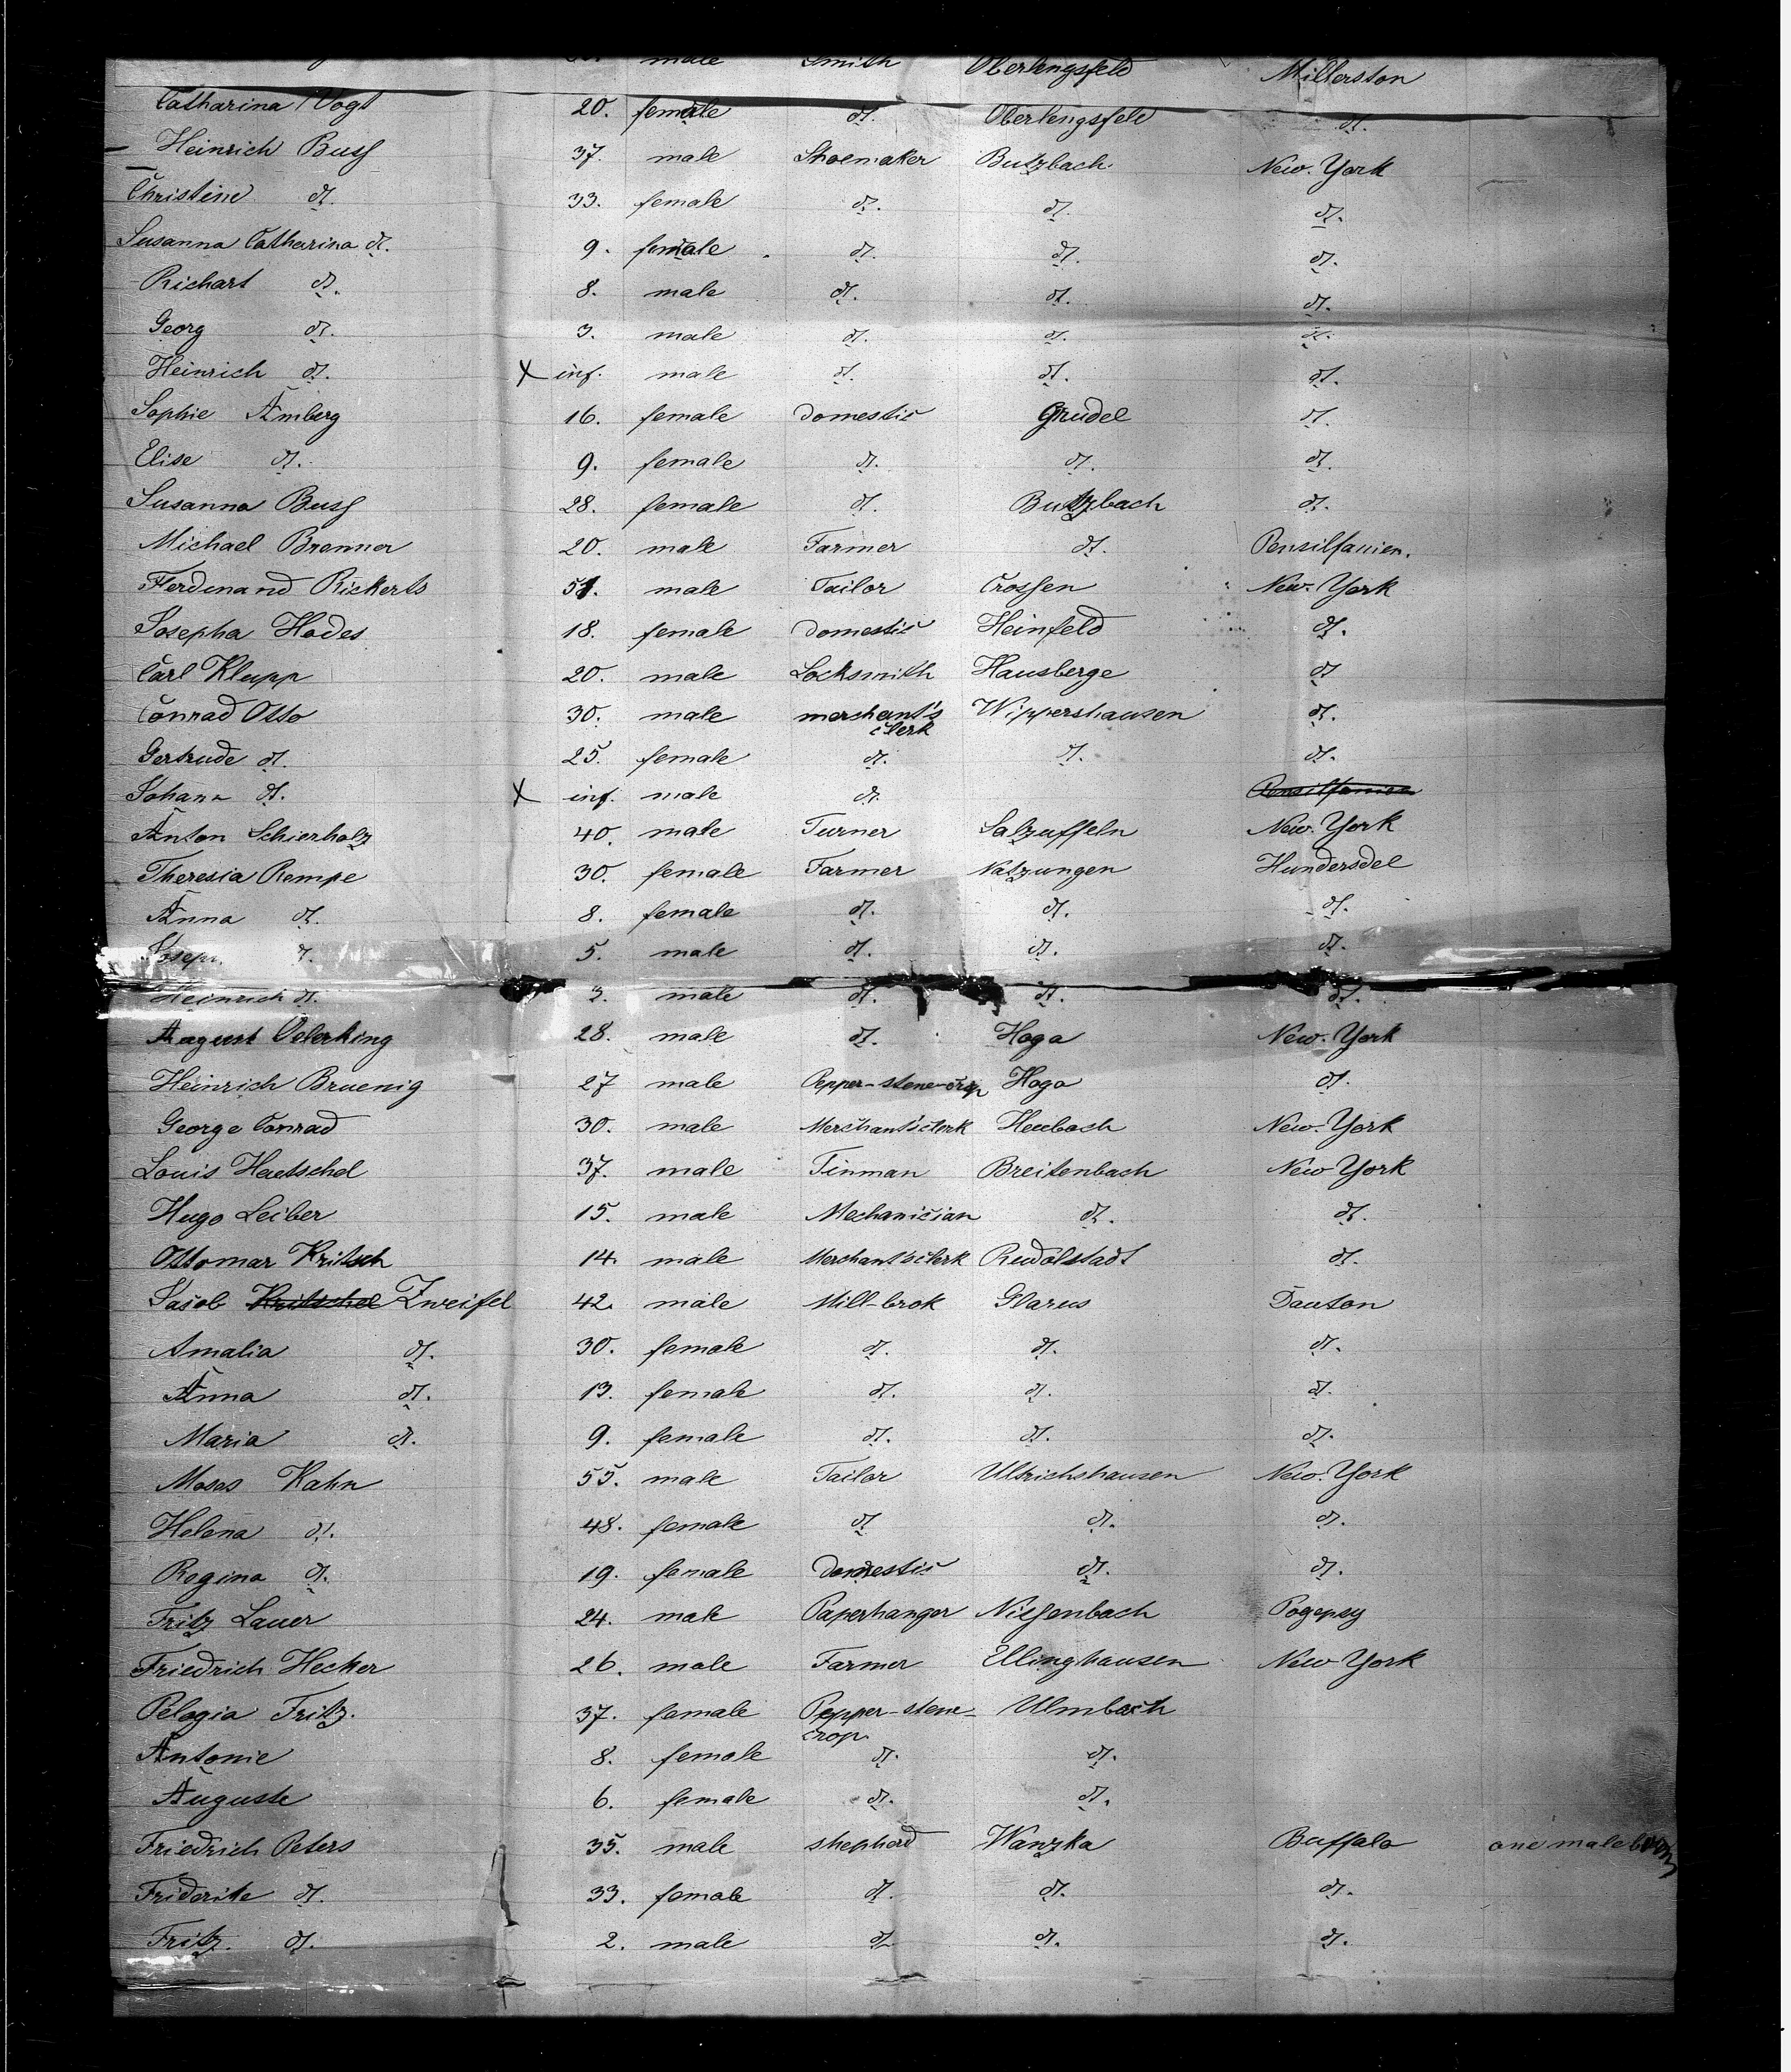 male Smith Oberlengsfeld Millerston
Catharina Vogt 20. female dt. Oberlengsfeld dt.
Heinrich Buss 37. male Shoemaker Butzbach New-York
Christine dt. 33. female dt. dt. dt.
Susanna Catharina dt. 9. female dt. dt. dt.
Richart dt. 8. male dt. dt. dt.
Georg dt. 3. male dt. dt. dt.
Heinrich dt. X inf. male dt. dt. dt.
Sophie Amberg 16. female domestic Grudel dt.
Elise dt. 9. female dt. dt. dt.
Susanna Buss 28. female dt. Butzbach dt.
Michael Brenner 20. male Farmer dt. Pensilfanien.
Ferdinand Rickerts 51. male Tailor Crossen New-York
Josepha Hodes 18. female domestic Heinfeld dt.
Carl Klupp 20. male Locksmith Hausberge dt
Conrad Otto 30. male merchant's clerk Wippershausen dt.
Gertrude dt. 25. female dt. dt. dt.
Johann dt. X inf. male dt. Pensilfanien
Anton Schierholz 40. male Turner Salzuffeln New-York
Theresia Rempe 30. female Farmer Natzungen Hundersdel
Anna dt. 8. female dt. dt. dt.
Joseph dt. 5. male dt. dt. dt.
Heinrich dt. 3. male dt. dt. dt.
August Oelerking 28. male dt. Hoga New-York
Heinrich Bruenig 27 male Pepper-stene-crop Hoga dt.
George Conrad 30. male Merchant'sclerk Heubach New-York
Louis Haetschel 37. male Tinman Breitenbach New York
Hugo Leiber 15. male Mechanician dt. dt.
Ottomar Kritsch 14. male Merchant'sclerk Rudolstadt dt.
Jacob Kritschel Zweifel 42. male Mill-brok Glarus Tauton
Amalia dt. 30. female dt. dt. dt.
Anna dt. 13. female dt. dt. dt.
Maria dt. 9. female dt. dt. dt.
Moses Kahn 55. male Tailor Ultrichshausen New-York
Helena dt. 48. female dt dt. dt.
Regina dt. 19. female domestic dt. dt.
Fritz Lauer 24. male Paperhanger Nissenbach Pogepsy
Friedrich Hecker 26. male Farmer Ellinghausen New York
Pelagia Fritz. 37. female Pepper-stene-crop. Ulmbach
Antonie 8. female dt. dt.
Auguste 6. female dt. dt.
Friedrich Peters 35. male shepherd Wanzka Buffalo one male born
Friderike dt. 33. female dt. dt. dt.
Fritz. dt. 2. male dt dt. dt.